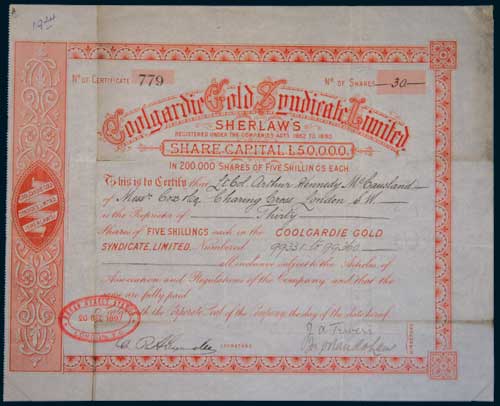 1924
No. OF CERTIFICATE 779
No. OF SHARES 30
Coolgardie Gold Syndicate Limited
SHERLAW'S
REGISTERED UNDER THE COMPANIES ACTS 1862 TO 1890
SHARE CAPITAL £50,000.
IN 200,000 SHARES OF FIVE SHILLINGS EACH.
This is to Certify that Lt Col. Arthur Kennedy McCausland
of Messrs Cox & Co Charing Cross London S.W.
is the Proprietor of Thirty
Shares of FIVE SHILLINGS each in the COOLGARDIE GOLD
SYNDICATE, LIMITED, Numbered 99331 to 99360
all inclusive subject to the Articles of
Association and Regulations of the Company and that the
same are fully paid
the Corporate Seal of the Company the day of the date hereof.
20 1897
SECRETARY